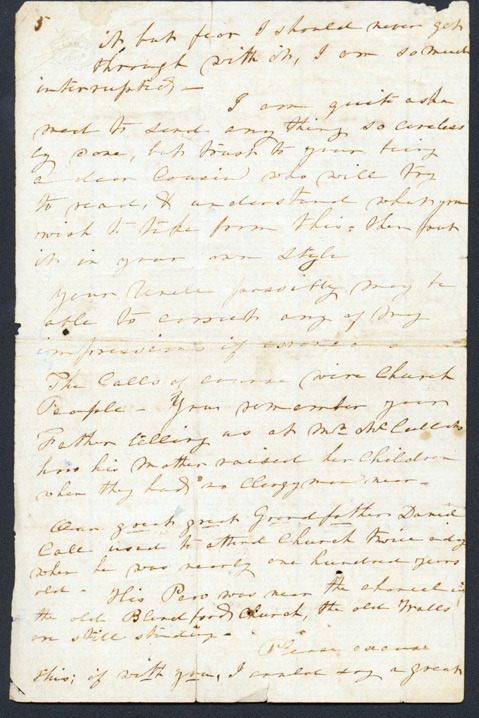 5
it, but fear I should never get
through with it, I am so much
interrupted -
I am quite asha
med to send any thing so careless
ly done, but trust to your being
a dear Cousin who will try
to read, & understand what you
wish to take from this: then put
it in your own Style
Your Uncle possibly may be
able to correct any of my
impressions if
The Calls of course were Church
People - You remember your
Father telling us at Mrs
how his Mother raised her Children
when they had no Clergyman near -
Our great great Grandfather Daniel
Call used to attend Church twice a day
when he was nearly one hundred years
old - His Pew was near the chancel in
the old Blandford Church, the old Walls
are still standing -
Please excuse
this; if with you, I could say a great